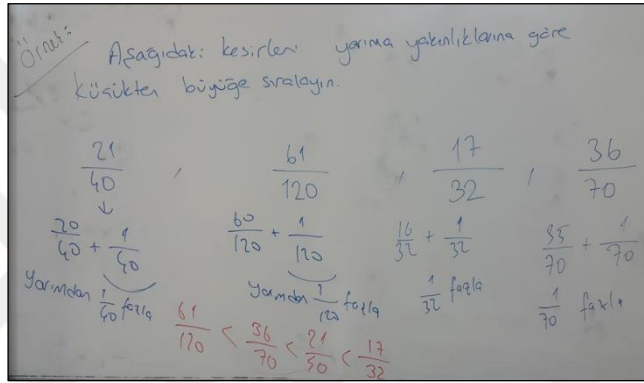 Örnek:
Aşağıdaki kesirleri yarıma yakınlıklarına göre
küçükten büyüğe sıralayın.
21/40 , 61/120 , 17/32 , 36/70
↓
20/40 + 1/40 60/120 + 1/120 16/32 + 1/32 35/70 + 1/70
Yarımdan 1/40 fazla Yarımdan 1/120 fazla 1/32 fazla 1/70 fazla
61/120 < 36/70 < 21/40 < 17/32